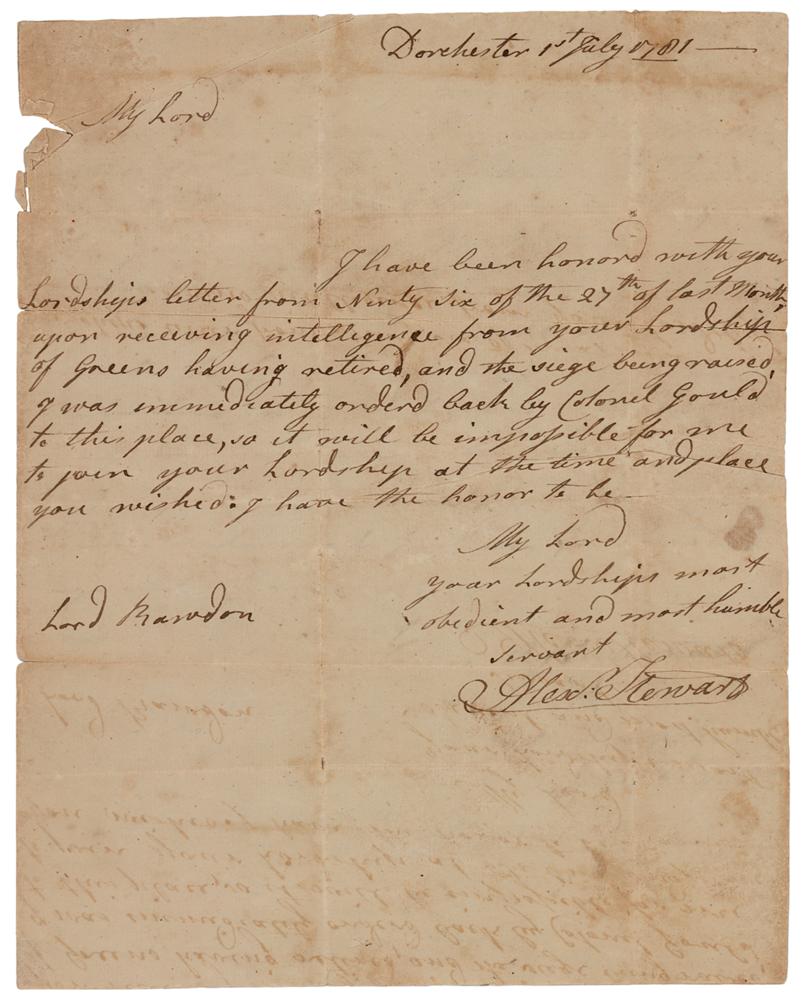 Dorchester 1st July 1781
My Lord
I have been honord with your
Lordships letter from Ninty Six of the 27th of last Month,
upon receiving intelligence from your Lordship
of Greens having retired, and the siege being raised,
I was immediately orderd back by Colonel Gould
to this place, so it will be impossible for me
to join your Lordship at the time and place
you wished: I have the honor to be
My Lord
your Lordships most
obedient and most humble
servant
Alexr. Stewart
Lord Rawdon